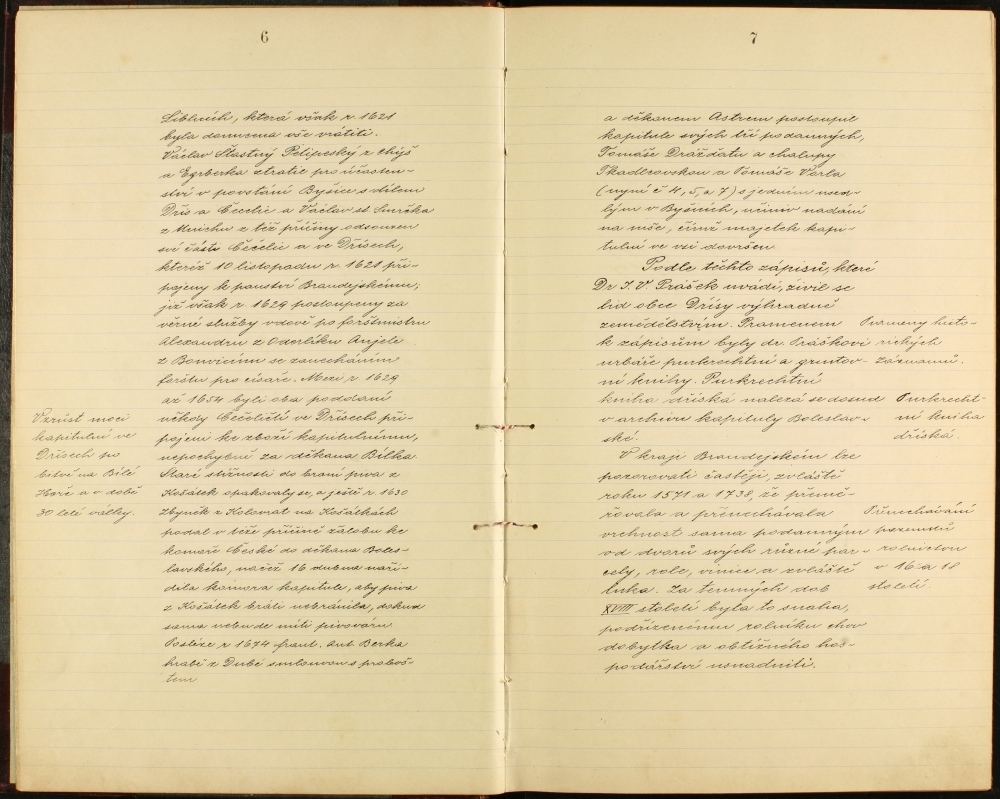 6
Liblicích, která však r. 1621
byla donucena vše vrátiti.
Václav Šťastný Petipeský z Chýš
a Egrberka ztratil pro účasten-
ství v povstání Byšice s dílem
Dřís a Čečelic a Václav st. Smrčka
z Mnichu z též příčiny odsouzen
své části Čečelic a ve Dřísech,
kteréž 10 listopadu r. 1621 při-
pojeny k panství Brandejskému;
již však r. 1629 postoupeny za
věrné služby vdově po forštmistru
Alexandru z Oderliku Anjele
z Bonvicinu se zanecháním
forštu pro císaře. Mezi r. 1629
až 1654 byli oba poddaní
někdy Čečeličtí ve Dřísech při-
pojeni ke zboží kapitulnímu,
nepochybně za děkana Bílka.
Staré stížnosti do braní piva z
Košátek opakovaly se, a ještě r 1630
Zbyněk z Kolovrat na Košátkách
podal v téže příčině žalobu ke
komoře České do děkana Boles-
lavského, načež 16 dubna naří-
dila komora kapitule, aby piva
z Košátek bráti nebránila, dokud
sama nebude míti pivováru
Posléze r 1674 frant. Ant Berka
hrabě z Dubé smlouvou s proboš-
tem
Vzrůst moci
kapitulní ve
Dřísech po
bitvě na Bílé
Hoře a v době
30 leté války.
7
a děkanem Astrem postoupil
kapitule svých tří poddaných,
Tomáše Drážďata a chalupy
Tkadlcovskou a Tomáše Vorla
(nyní č 4, 5, a 7) s jedním used-
lým v Byšicích, učiniv nadání
na mše, čímž majetek kapi-
tulní ve vsi dovršen
Podle těchto zápisů, které
Dr J. V Prášek uvádí, živil se
lid obce Dřísy výhradně
zemědělstvím. Pramenem
k zápisům byly dr. Práškovi
urbáře purkrechtní a gruntov-
ní knihy. Purkrechtní
kniha dříská nalezá se dosud
v archivu kapituly Boleslav-
ské.
Prameny histo-
rických
záznamů.
Purkrecht-
ní kniha
dříská.
V kraji Brandejském lze
pozorovati častěji, zvláště
roku 1571 a 1738, že přemě-
řovala a přenechávala
vrchnost sama poddaným
od dvorů svých různé par-
cely, role, vinice a zvláště
luka. Za temných dob
XVIII století byla to snaha,
podřízenému rolníku chov
dobytka a obtížného hos-
podářství usnadniti.
Přenechávání
pozemků
rolnictvu
v 16 a 18
století